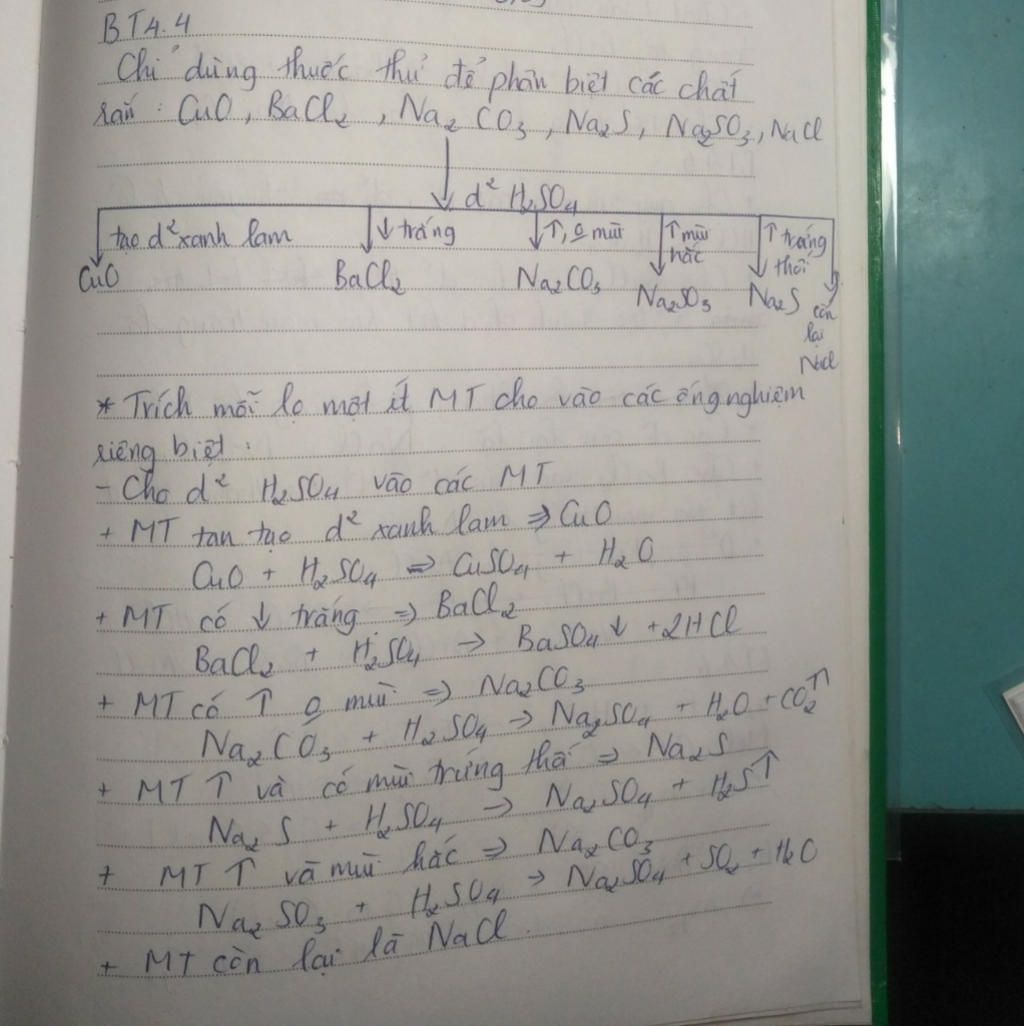 BT4.4
Chỉ dùng thuốc thử để phân biệt các chất
rắn : CuO, BaCl₂, Na₂CO₃, Na₂S, Na₂SO₃, NaCl
d² H₂SO₄
tạo d² xanh lam ↓ trắng ↑, o mùi ↑ mùi hắc ↑ trứng thối
CuO BaCl₂ Na₂CO₃ Na₂SO₃ Na₂S còn lại NaCl
* Trích mỗi lọ một ít MT cho vào các ống nghiệm
riêng biệt :
- Cho d² H₂SO₄ vào các MT
+ MT tan tạo d² xanh lam ⇒ CuO
CuO + H₂SO₄ ⇒ CuSO₄ + H₂O
+ MT có ↓ trắng ⇒ BaCl₂
BaCl₂ + H₂SO₄ → BaSO₄↓ + 2HCl
+ MT có ↑ o mùi ⇒ Na₂CO₃
Na₂CO₃ + H₂SO₄ → Na₂SO₄ + H₂O + CO₂↑
+ MT ↑ và có mùi trứng thối ⇒ Na₂S
Na₂S + H₂SO₄ → Na₂SO₄ + H₂S↑
+ MT ↑ và mùi hắc ⇒ Na₂CO₃
Na₂SO₃ + H₂SO₄ → Na₂SO₄ + SO₂ + H₂O
+ MT còn lại là NaCl.